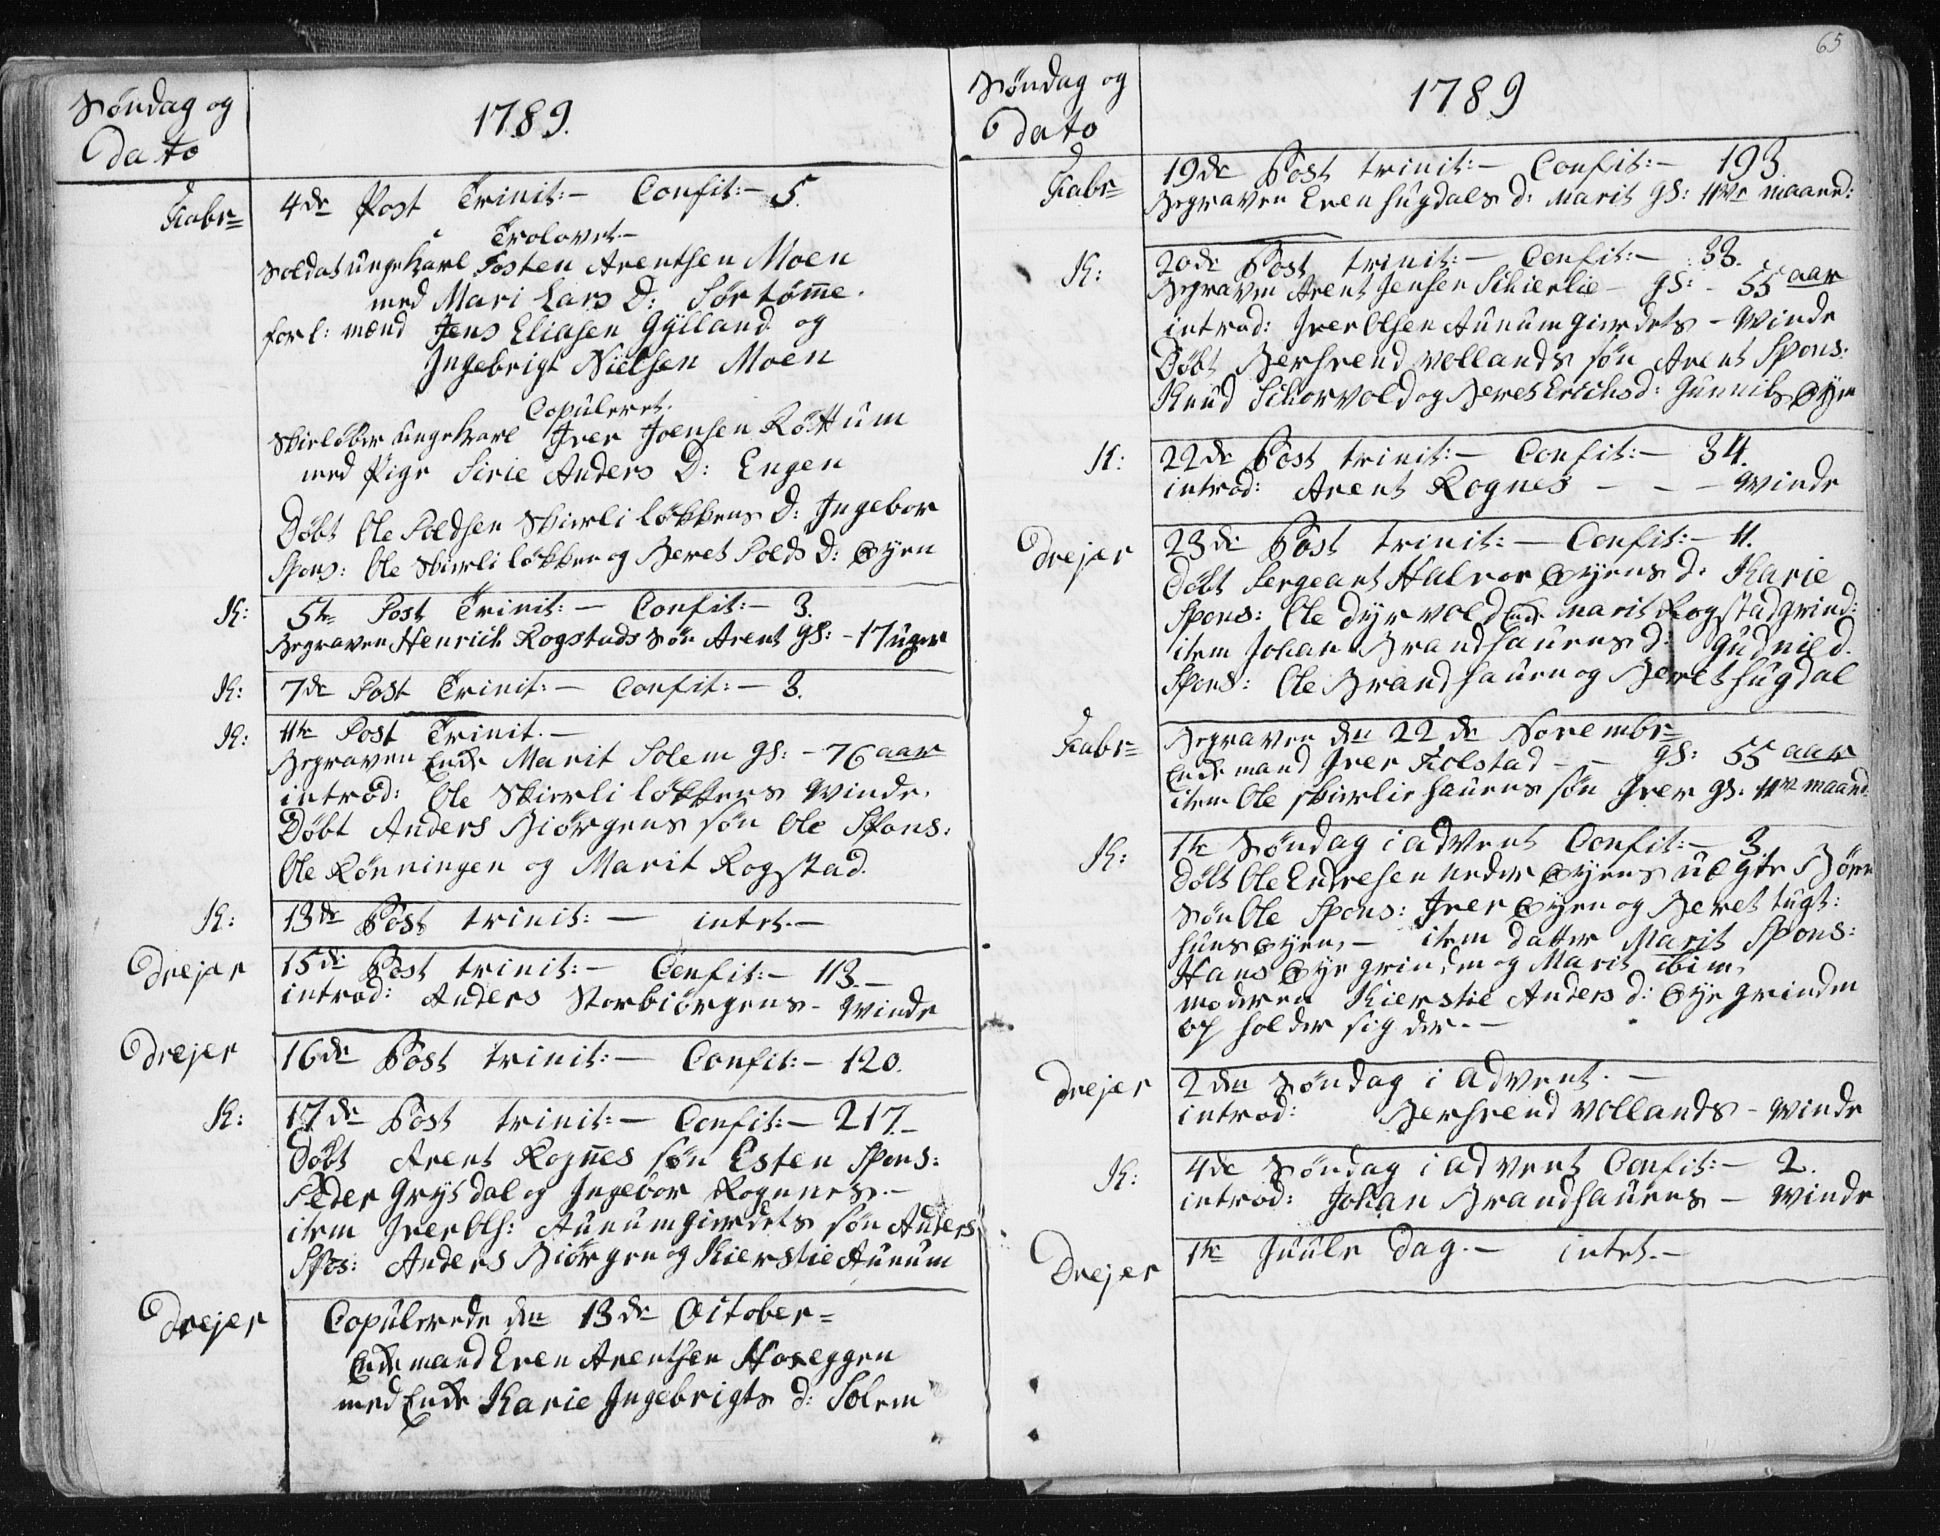 Søndag og
Dato
1789.
Fabr=
4de Post Trinit:- Confit:- 5.
Trolovet-
Soldat ungekarl Tosten Arentsen Moen
med Mari Lars D: Sørtømme.
forl: mænd Jens Eliasen Gylland og
Ingebrigt Nielsen Moen
Copuleret.
Skieløber ungekarl Iver Joensen Røttum
med Pige Sirie Anders D: Engen
Døbt Ole Poldsen Skierliløkkens D: Ingebor
Spons: Ole Skierliløkken og Beret Polds D: Øyen
K:
5te Post Trinit:- Confit:- 3.
Begraven Henrich Rogstads Søn Arent gl: - 17 uger
K:
7de Post Trinit:- Confit:- 3.
K:
11te Post Trinit.-
Begraven Enke Marit Solem gl: - 76 aar
introd: Ole Skierliløkkens Qvinde.
Døbt Anders Biørgens søn Ole Spons:
Ole Rønningen og Marit Rogstad.
K:
13de Post trinit:- intet.-
Drejer
15de Post trinit:- Confit:- 113.-
introd: Anders Storbiørgens- Qvinde
Drejer
16de Post trinit:- Confit:- 120.
K:
17de Post trinit:- Confit:- 217.-
Døbt Arent Rognes søn Esten Spons:
Peder Grytdal og Ingebor Rognnes.-
item Iver Ols: Aunumgierdets søn Anders
Spos: Anders Biørgen og Kierstie Aunum
Drejer
Copulerede den 13de October=
Enkemand Even Arentsen Hoseggen
med Enke Karie Ingebrigts d: Solem
65
Søndag og
dato
1789
Fabr=
19de Post trinit:- Confit:- 193.
Begraven Even Hugdals d: Marit gl: 11ve maaned:
K:
20de Post trinit:- Confit:- 33.
Begraven Arent Jensen Skierlie- gl: - 55 aar
introd: Iver Olsen Aunumgierdets - Qvinde
Døbt Berhrend Vollands søn Arent Spons:
Knud Skorvold og Beret Erichsd: Gunnils Øyen
K:
22de Post trinit:- Confit:- 34.
introd: Arent Rognes - - - Qvinde
Drejer
23de Post trinit:- Confit:- 11.
Døbt Sergeant Halvor Øyens d: Karie
Spons: Ole Dyrvold Enke Marit Rogstadgrind:
item Johan Brandhauens d: Gudnild.
Spons: Ole Brandhauen og Beret Hugdal
Fabr=
Begraven den 22de Novembr=
Enkemand Iver Kolstad - - gl: 55 aar
item Ole Skierliehauens søn Iver gl: 11ve maand.
K:
1te Søndag i advent Confit:- 3.
Døbt Ole Endresen Neder Øyens uægte Børn
Søn Ole Spons: Iver Øyen og Beret tugt:
huus Øyen,- item datter Marit Spons:
Hans Øyegrinden og Marit ibim,
moderen Kierstie Anders d: Øyegrinden
opholder sig der.-
Drejer
2den Søndag i advent.-
introd: Berhrend Vollands - Qvinde
K:
4de Søndag i advent Confit:- 2.
introd: Johan Brandhauens - Qvinde
Drejer
1te Juule dag.- intet.-